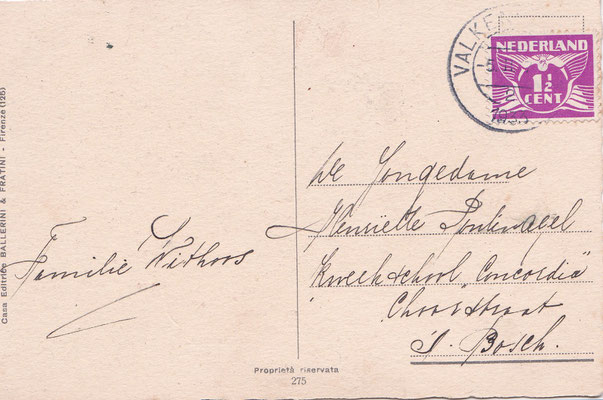 Casa Editrice BALLERINI & FRATINI - Firenze (125)
Familie Withoos
VALKEN
1933
NEDERLAND
1½
CENT
De Jongedame
Henriëtte
Kweekschool "Concordia"
Choorstraat
's Bosch.
Proprietà riservata
275